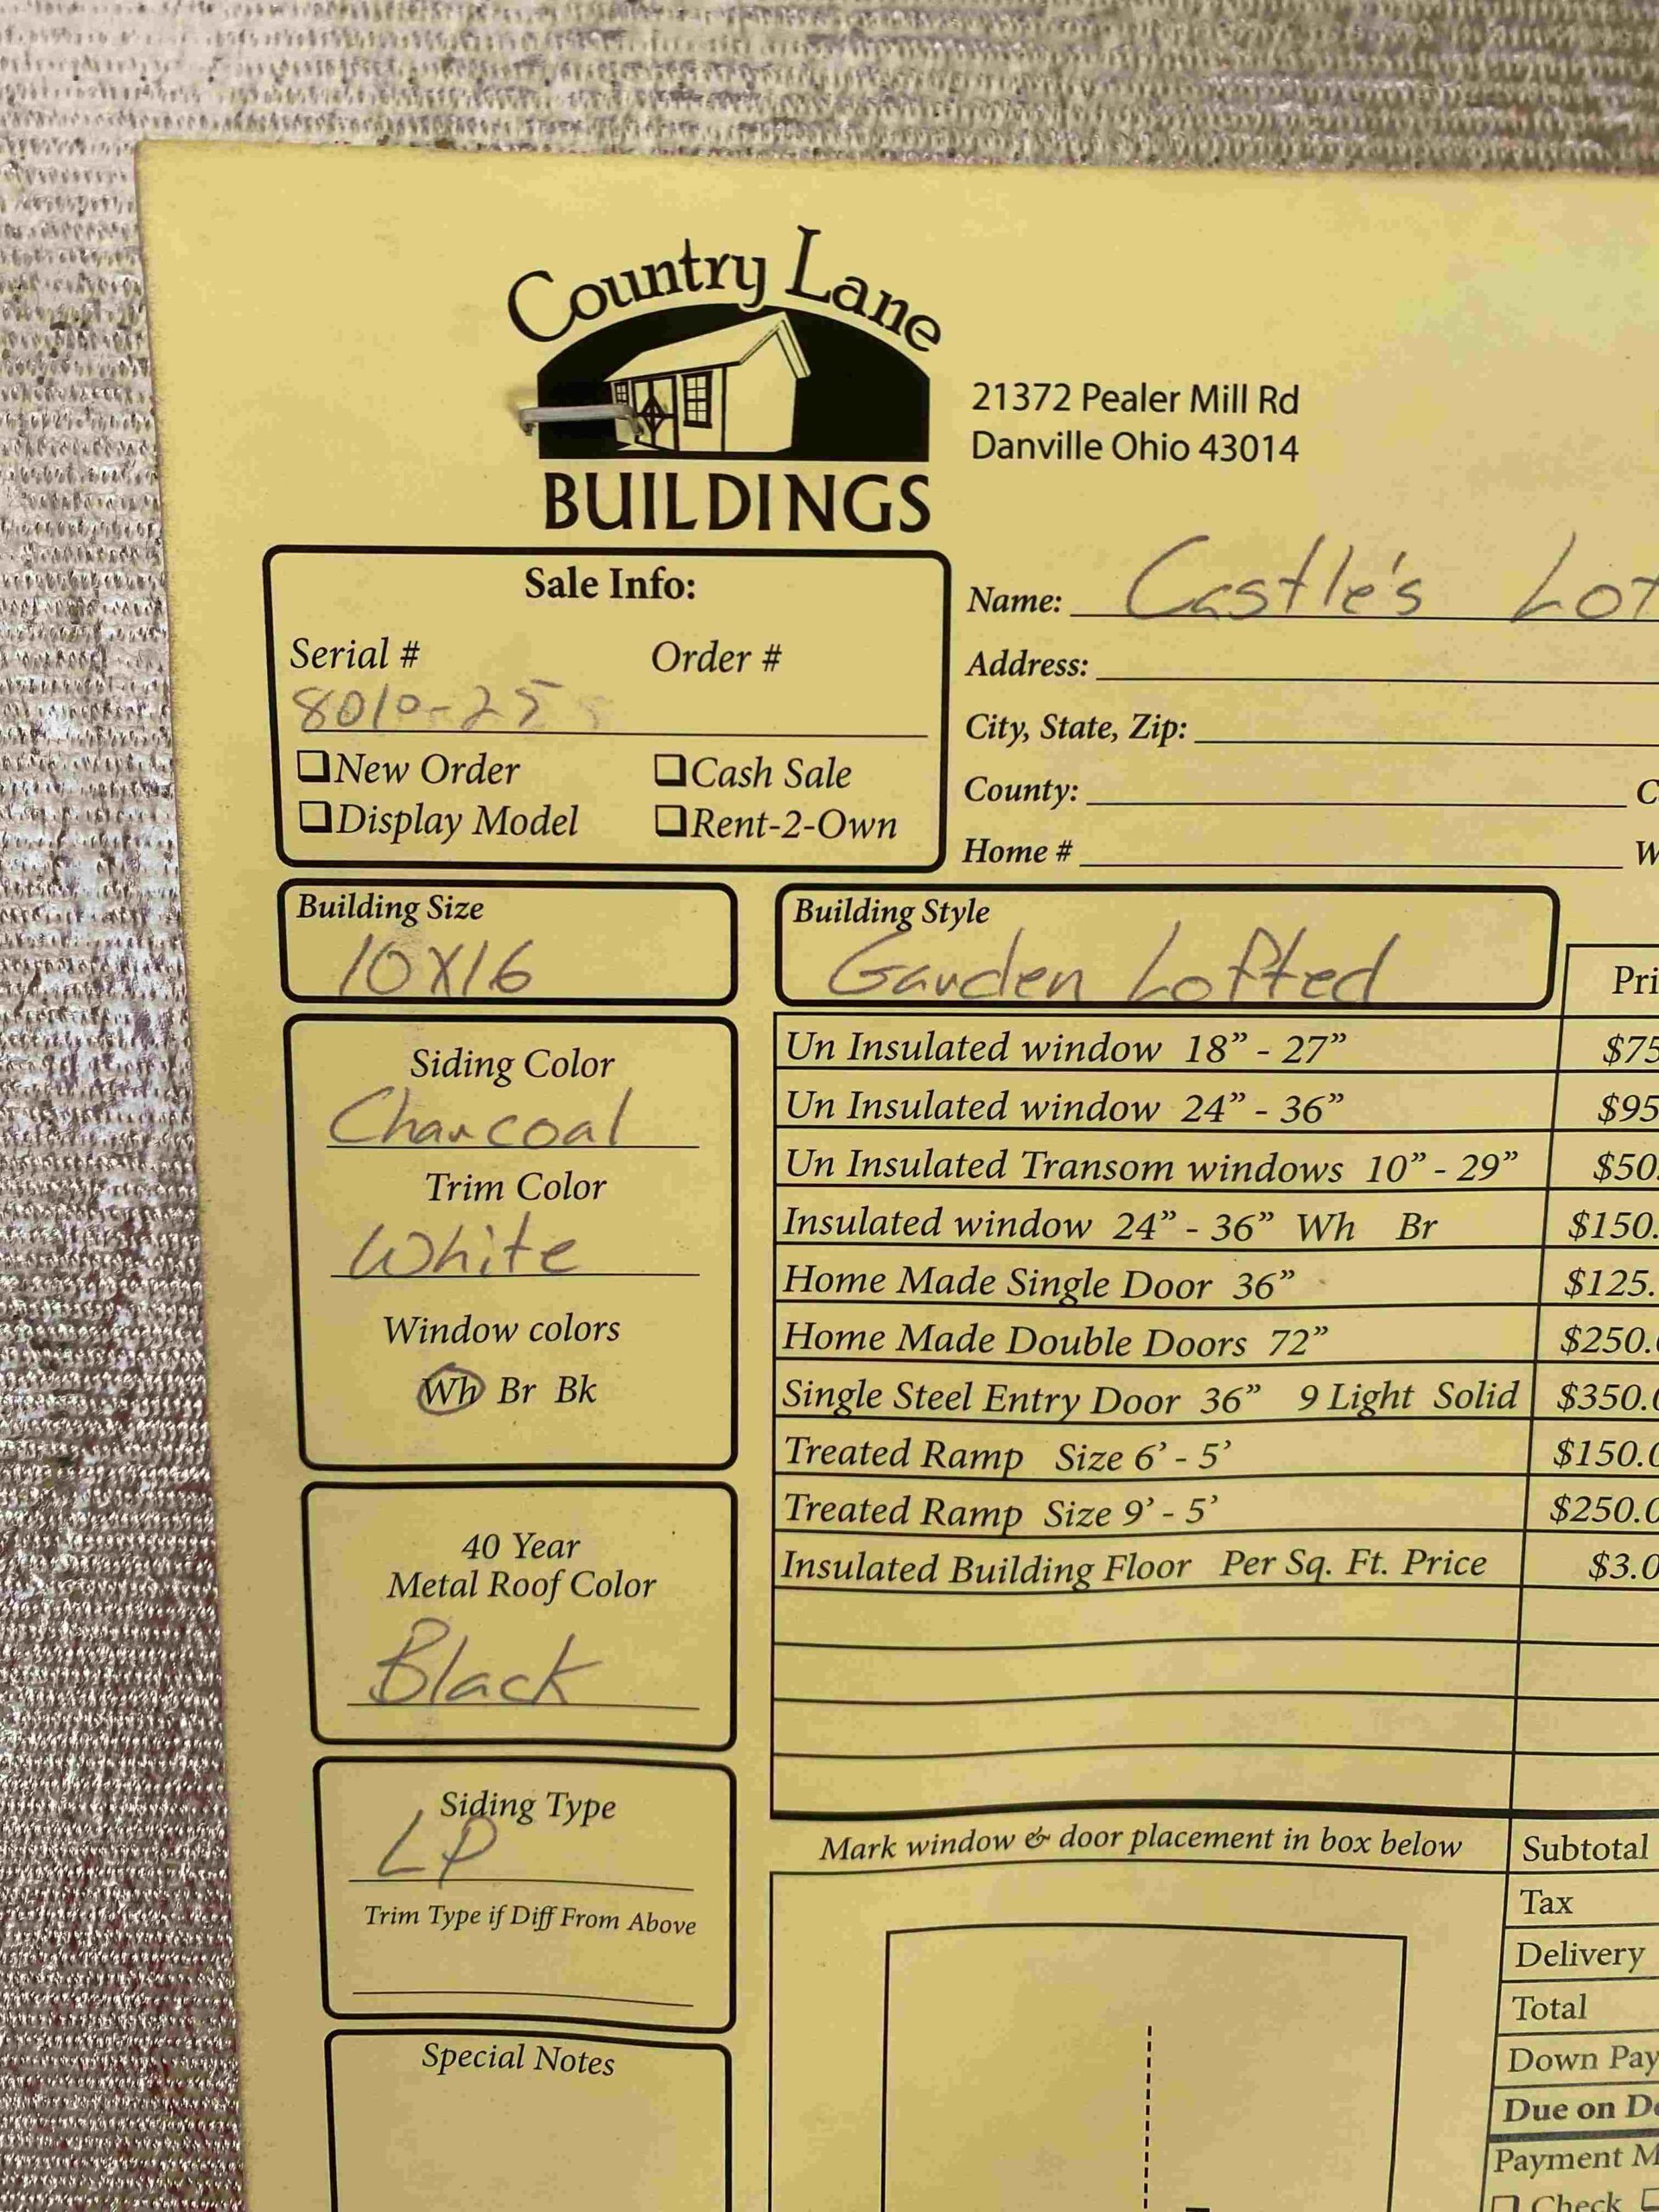 Country Lane
BUILDINGS
21372 Pealer Mill Rd
Danville Ohio 43014
Sale Info:
Serial # Order #
8010-25
❑New Order ❑Cash Sale
❑Display Model ❑Rent-2-Own
Name: Castle's Lot
Address:
City, State, Zip:
County: C
Home # W
Building Size
10X16
Building Style
Garden Lofted
Siding Color
Charcoal
Trim Color
White
Window colors
Wh Br Bk
40 Year
Metal Roof Color
Black
Siding Type
LP
Trim Type if Diff From Above
Special Notes
Pri
Un Insulated window 18” - 27” $75
Un Insulated window 24” - 36” $95
Un Insulated Transom windows 10” - 29” $50.
Insulated window 24” - 36” Wh Br $150.
Home Made Single Door 36” $125.
Home Made Double Doors 72” $250.0
Single Steel Entry Door 36” 9 Light Solid $350.0
Treated Ramp Size 6’ - 5’ $150.0
Treated Ramp Size 9’ - 5’ $250.0
Insulated Building Floor Per Sq. Ft. Price $3.0
Mark window & door placement in box below
Subtotal
Tax
Delivery
Total
Down Pay
Due on De
Payment M
❑ Check